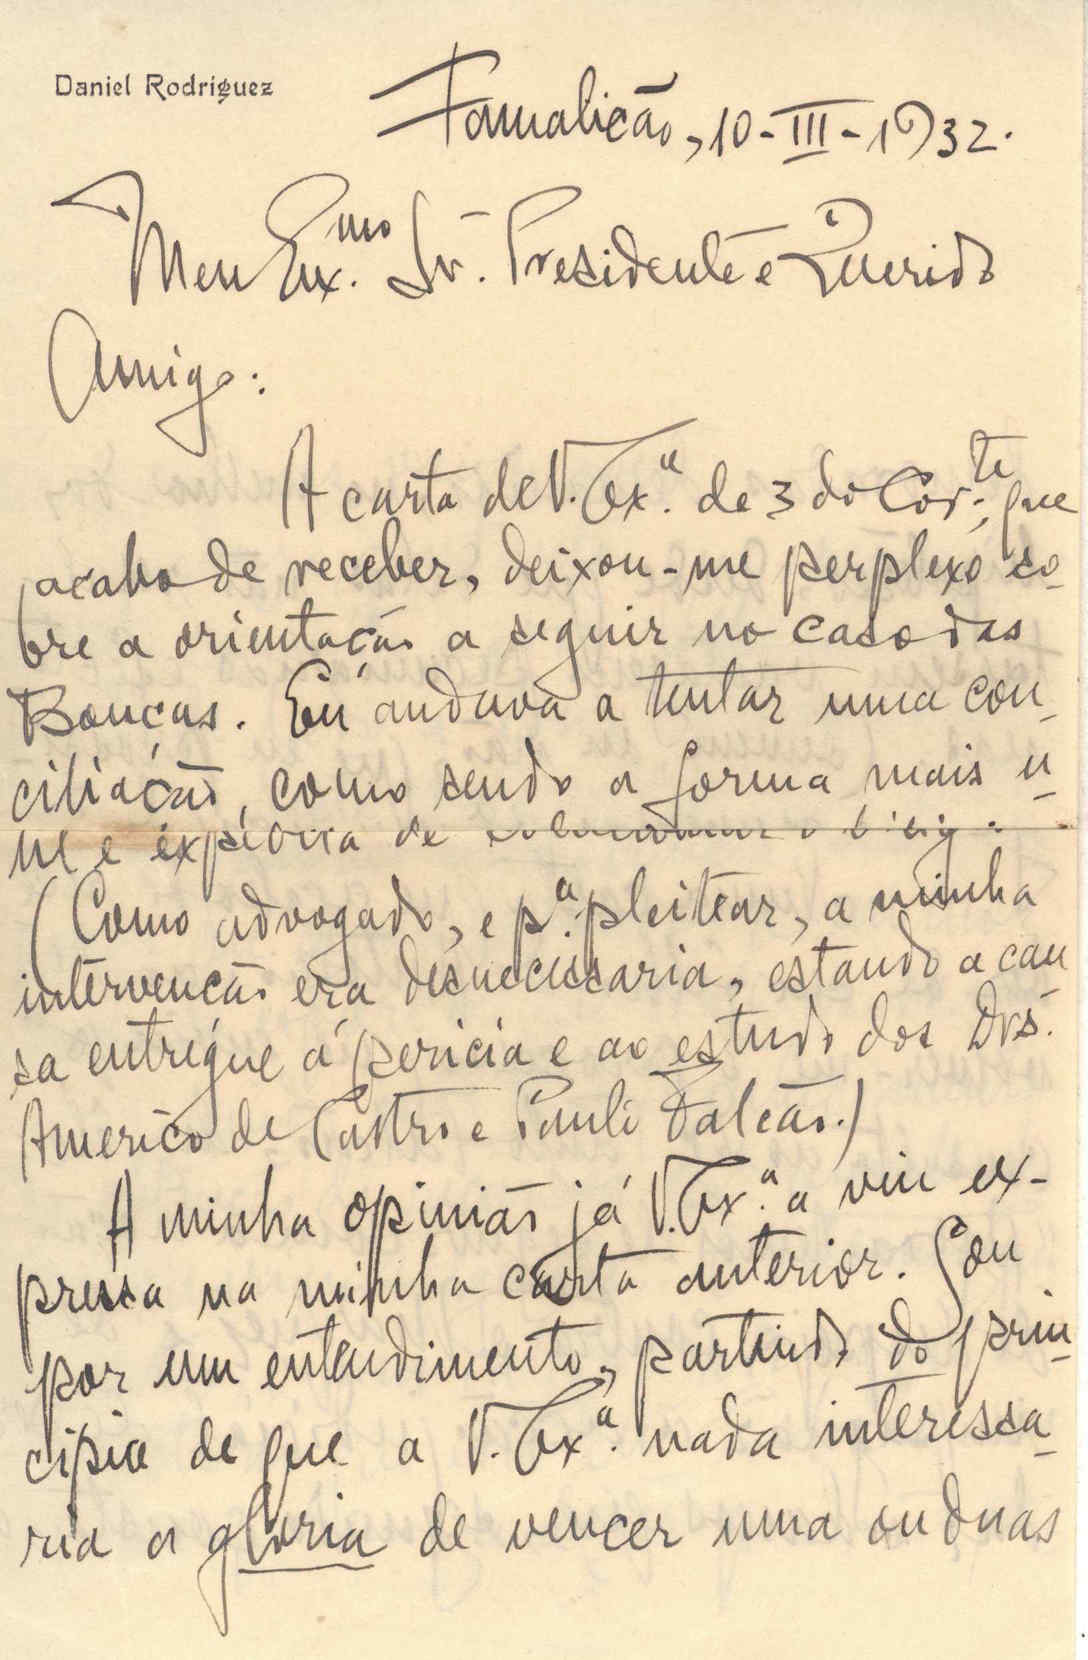 Daniel Rodriguez
Famalicão, 10-III-1932.
Meu Ex.mo Sr. Presidente e Querido
Amigo:
A carta de V. Ex.a de 3 do Cor.te, que
acabo de receber, deixou-me perplexo so-
bre a orientação a seguir no caso das
Bouças. Eu andava a tentar uma con-
ciliação, como sendo a forma mais u-
til e expedita de solucionar o litigio.
(Como advogado, e p.a pleitear, a minha
intervenção era desnecessaria, estando a cau
sa entregue á pericia e ao estudo dos Drs.
Americo de Castro e Paulo Falcão.)
A minha opinião já V. Ex.a a viu ex-
pressa na minha carta anterior. Sou
por um entendimento, partindo do prin-
cipio de que a V. Ex.a nada interessa-
ria a gloria de vencer uma ou duas